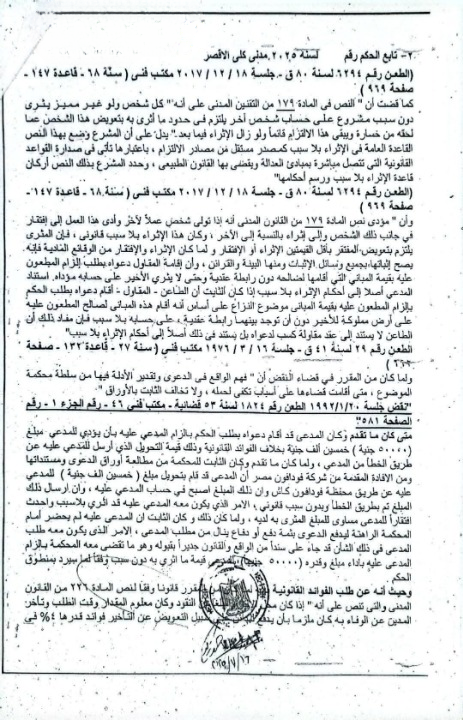 -٢- تابع الحكم رقم لسنة ٢٠٢٥ مدنى كلى الأقصر
(الطعن رقم ٦٢٩٤ لسنة ٨٠ ق - جلسة ١٨ / ١٢ / ٢٠١٧ مكتب فنى ( سنة ٦٨ - قاعدة ١٤٧ -
صفحة ٩٦٩ )
كما قضت أن " النص فى المادة ١٧٩ من التقنين المدنى على أنه " كل شخص ولو غير مميز يثرى
دون سبب مشروع على حساب شخص آخر يلتزم فى حدود ما أثرى به بتعويض هذا الشخص عما
لحقه من خسارة ويبقى هذا الالتزام قائماً ولو زال الإثراء فيما بعد." يدل على أن المشرع وضع بهذا النص
القاعدة العامة فى الإثراء بلا سبب كمصدر مستقل من مصادر الالتزام ، باعتبارها تأتى فى صدارة القواعد
القانونية التى تتصل مباشرة بمبادئ العدالة ويقضى بها القانون الطبيعى ، وحدد المشرع بذلك النص أركان
قاعدة الإثراء بلا سبب ورسم أحكامها"
(الطعن رقم ٦٢٩٤ لسنة ٨٠ ق - جلسة ١٨ / ١٢ / ٢٠١٧ مكتب فنى ( سنة ٦٨ - قاعدة ١٤٧ -
صفحة ٩٦٩ )
وأن " مؤدى نص المادة ١٧٩ من القانون المدنى أنه إذا تولى شخص عملاً لآخر وأدى هذا العمل إلى إفتقار
فى جانب ذلك الشخص وإلى إثراء بالنسبة إلى الآخر ، وكان هذا الإثراء بلا سبب قانونى ، فإن المثرى
يلتزم بتعويض المفتقر بأقل القيمتين الإثراء أو الإفتقار و لما كان الإثراء والإفتقار من الوقائع المادية فإنه
يصح إثباتها بجميع وسائل الإثبات ومنها البينة والقرائن ، وأن إقامة المقاول دعواه بطلب إلزام المطعون
عليه بقيمة المبانى التى أقامها لصالحه دون رابطة عقدية وحتى لا يثرى الأخير على حسابه مؤداه. استناد
المدعى أصلاً إلى أحكام الإثراء بلا سبب إذا كان الثابت أن الطاعن - المقاول - أقام دعواه بطلب الحكم
بإلزام المطعون عليه بقيمة المبانى موضوع النزاع على أساس أنه أقام هذه المبانى لصالح المطعون عليه
على أرض مملوكة للأخير دون أن توجد بينهما رابطة عقدية ، على حسابه بلا سبب فإن مفاد ذلك أن
الطاعن لا يستند إلى عقد مقاولة كسب لدعواه بل يستند فى ذلك أصلاً إلى أحكام الإثراء بلا سبب"
(الطعن رقم ٢٩ لسنة ٤١ ق - جلسة ١٦ / ٣ / ١٩٧٦ مكتب فنى ( سنة ٢٧ - قاعدة ١٣٢ - صفحة
ولما كان من المقرر فى قضاء النقض أن " فهم الواقع فى الدعوى وتقدير الأدلة فيها من سلطة محكمة
الموضوع ، متى أقامت قضاءها على أسباب تكفى لحمله ، ولا تخالف الثابت بالأوراق "
"نقض جلسة ١٩٩٢/١/٢٠ الطعن رقم ١٨٢٤ لسنة ٥٣ قضائية - مكتب فنى ٤٦ - رقم الجزء ١ - رقم
الصفحة ٥٨١"
متى كان ما تقدم وكان المدعى قد أقام دعواه بطلب الحكم بالزام المدعى عليه بأن يؤدى للمدعى مبلغ
(٥٠٠٠٠ جنية ) خمسين ألف جنية بخلاف الفوائد القانونية وذلك قيمة التحويل الذى أرسل للمدعى عليه عن
طريق الخطأ من المدعى ، ولما كان ما تقدم وكان الثابت للمحكمة من مطالعة أوراق الدعوى ومستنداتها
ومن الافادة المقدمة من شركة فودافون مصر أن المدعى قد قام بتحويل مبلغ ( خمسين الف جنية ) للمدعى
عليه عن طريق محفظة فودافون كاش وان ذلك المبلغ اصبح فى حساب المدعى عليه ، وأن ارسال ذلك
المبلغ تم بطريق الخطأ وبدون سبب قانونى ، الامر الذى يكون معه المدعى عليه قد أثرى بلاسبب واحدث
افتقاراً للمدعى مساوى للمبلغ المثرى به لديه ، ولما كان ذلك و كان الثابت ان المدعى عليه لم يحضر أمام
المحكمة الراهنة ليدفع الدعوى بثمة دفع أو دفاع ينال من مطلب المدعى ، الامر الذى يكون معه طلب
المدعى فى ذلك الشأن قد جاء على سنداً من الواقع والقانون جديراً بقبوله وهو ما تقضى معه المحكمة بالزام
المدعى عليه بأداء مبلغ وقدره (٥٠٠٠٠ جنية) للمدعى قيمة ما اثرى به دون سبب وفقاً لما سيرد بمنطوق
الحكم
وحيث أنه عن طلب الفوائد القانونية من المقرر قانونا وفقاً لنص المادة ٢٢٦ من القانون
المدنى والتى تنص على أنه " إذا كان محل النقود وكان معلوم المقدار وقت الطلب وتأخر
المدين عن الوفاء به كان ملزما بأن يدفع سبيل التعويض عن التأخير فوائد قدرها ٤% فى